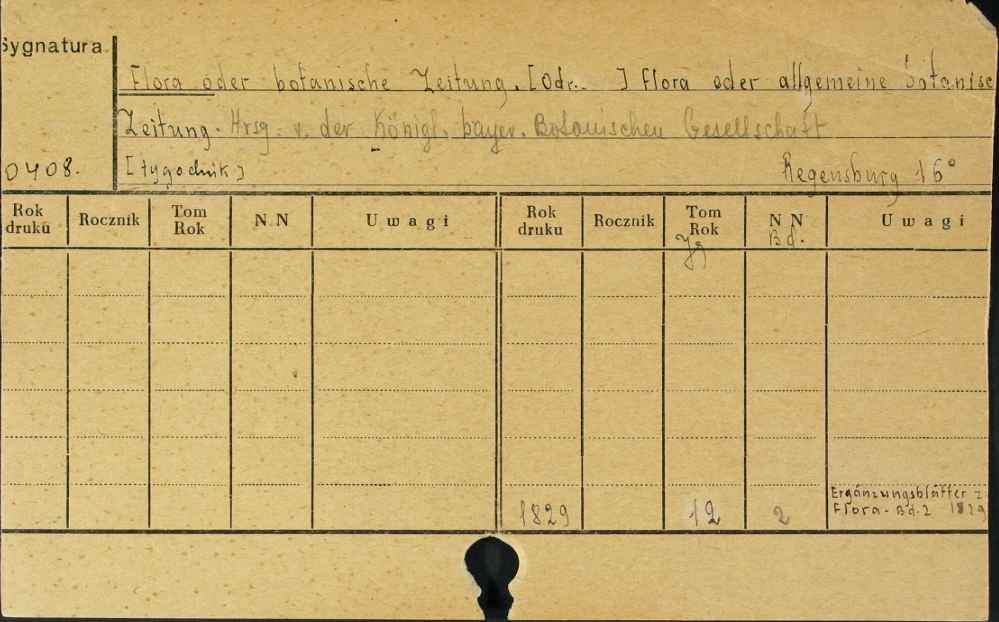 Sygnatura
Flora oder botanische Zeitung. [Odr.. ] Flora oder allgemeine botanisc
Zeitung. Hrsg. v. der Königl. bayer. Botanischen Gesellschaft
0408. [tygodnik] Regensburg 16°
Rok druku Rocznik Tom Rok N. N U w a g i Rok druku Rocznik Tom Rok N N U w a g i
Jg Bd.
Ergänzungsblätter z
1829 12 2 Flora - Bd. 2 1829